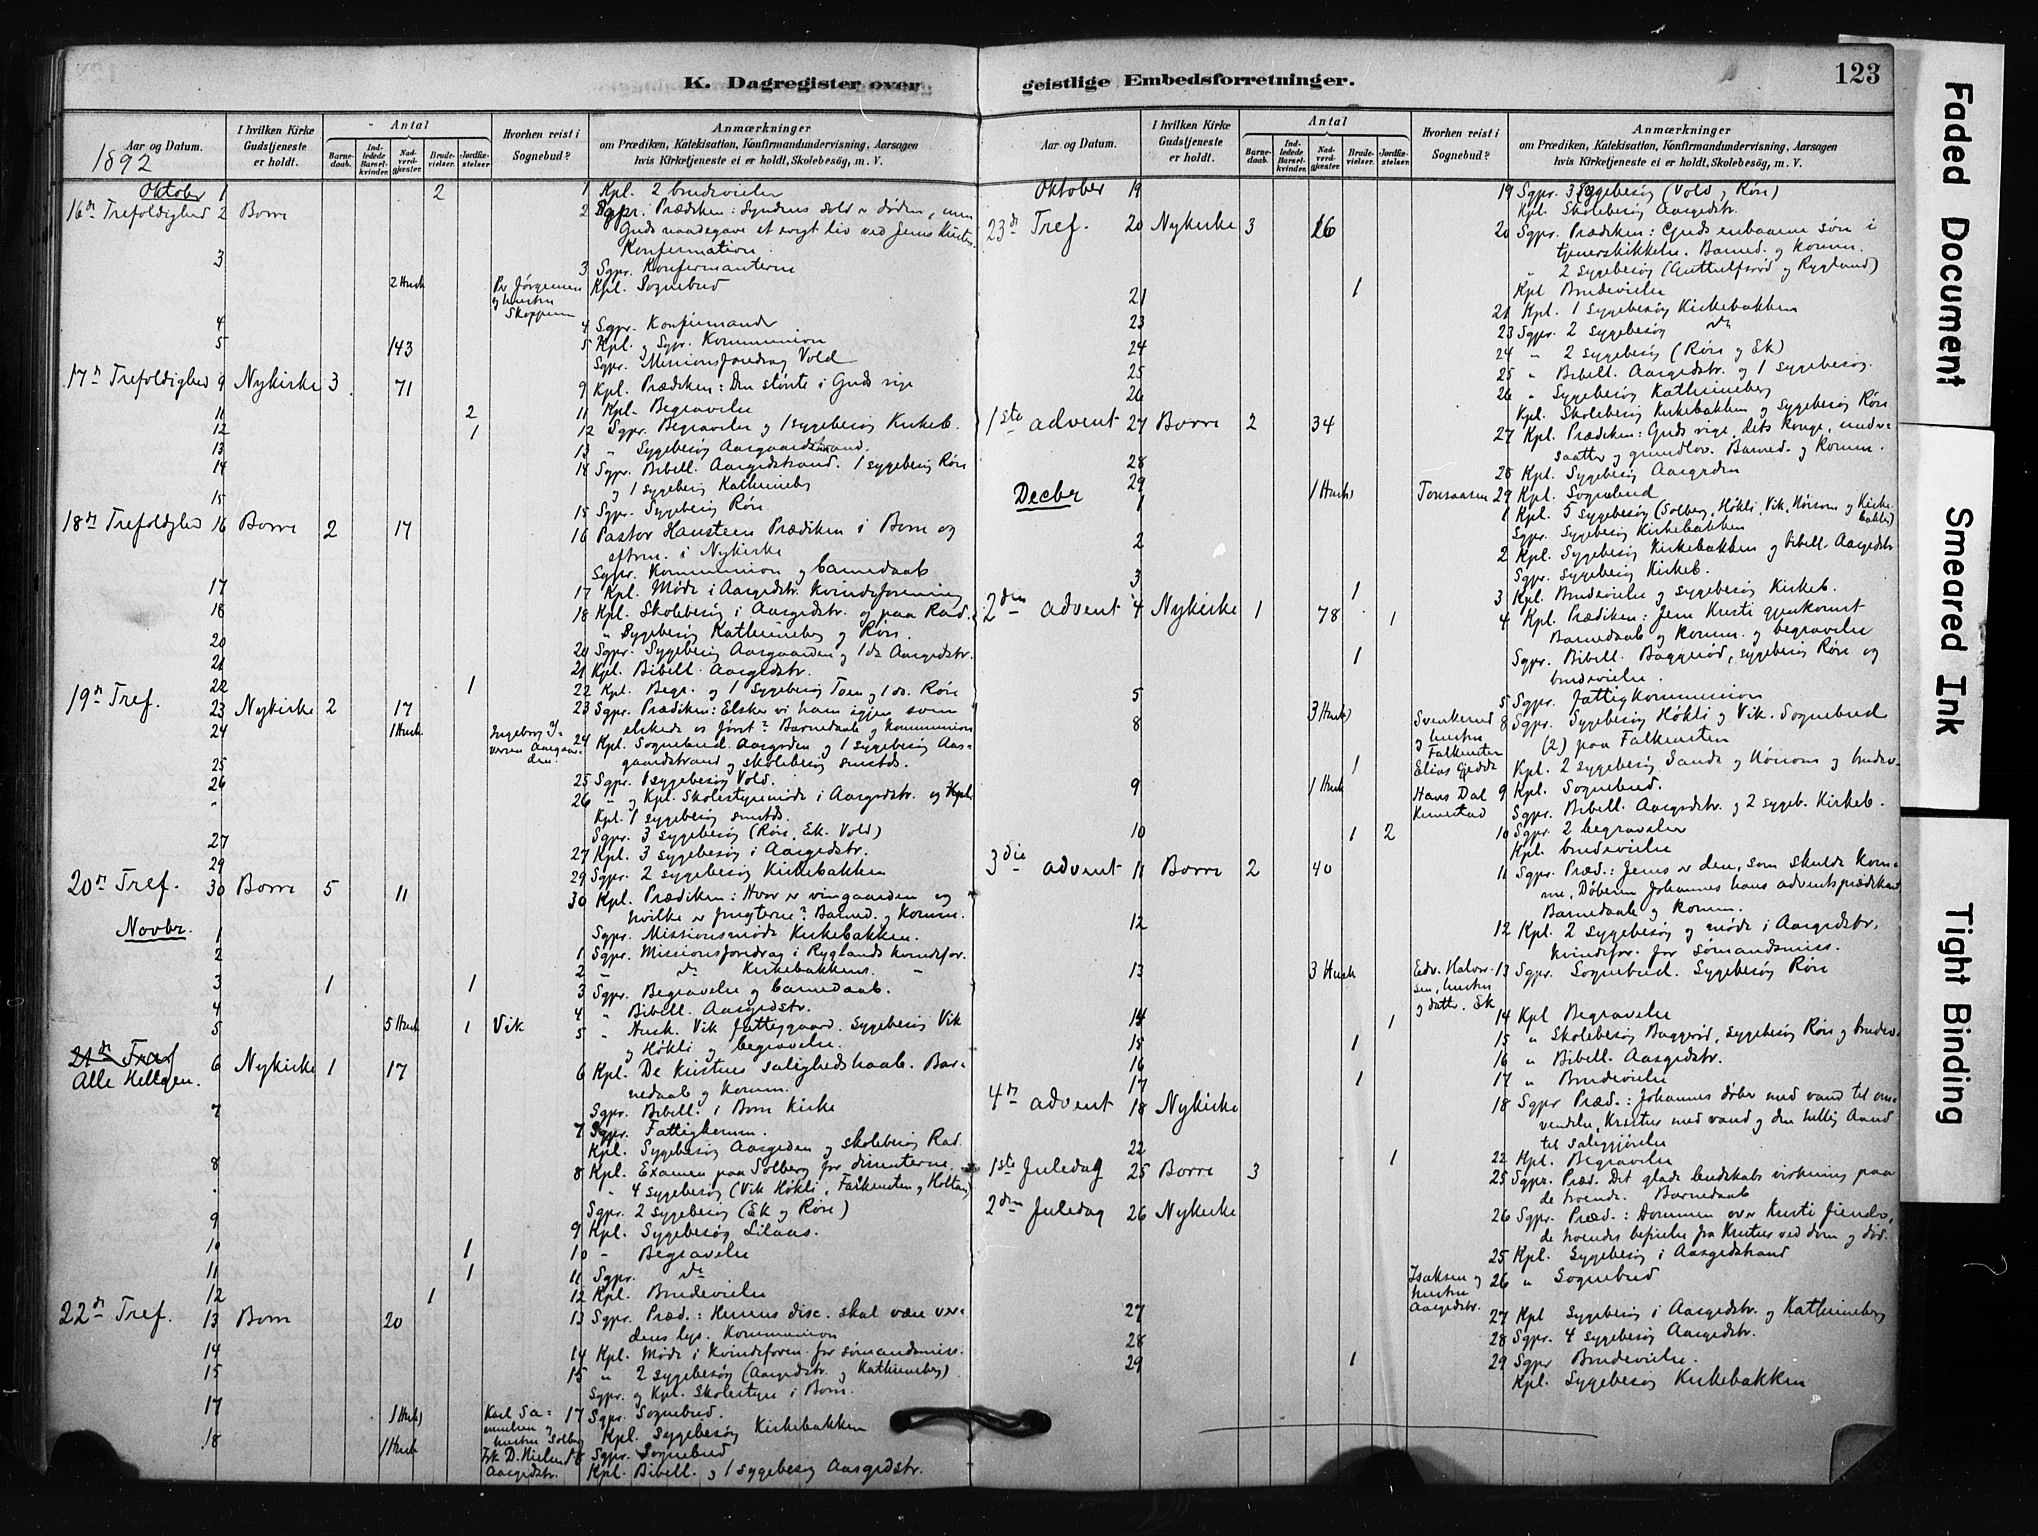 K. Dagregister over
Aar og Datum.
I hvilken Kirke Gudstjeneste er holdt.
Antal
Barne-daab.
Ind-ledede Barsel-kvinder.
Nad-verd-gjester.
Brude-vielser.
Jordfæ-stelser.
Hvorhen reist i Sognebud?
Anmærkninger
om Prædiken, Katekisation, Konfirmandundervisning, Aarsagen
hvis Kirketjeneste ei er holdt, Skolebesög, m. V.
1892
Oktober 1 2 1 Kpl. 2 brudevielser
16de Trefoldighed 2 Borre 2 Sgpr. Prædiken: Syndens sold er døden, men
Guds naadegave et evigt liv ved Jesus Kristus.
Konfirmation
3 3 Sgpr. Konfirmanterne
2 Husk Per Jørgensen og hustru Skoppum Kpl. Sognebud
4 4 Sgpr. Konfirmander
5 143 5 Kpl. og Sgpr. Kommunion
Sgpr. Missionsforedrag Vold
17de Trefoldighed 9 Nykirke 3 71 9 Kpl. Prædiken: Den største i Guds rige
11 2 11 Kpl. Begravelse
12 1 12 Sgpr. Begravelse og 1 sygebesøg Kirkeb.
13 13 " Sygebesøg Aasgaardstrand.
14 14 Sgpr. Bibell. Aasgrdstrand. 1 sygebesøg Røre
og 1 sygebesøg Kathrineberg
15 15 Sgpr. Sygebesøg Røre
18de Trefoldighed 16 Borre 2 17 16 Pastor Hansteen Prædiken i Borre og
eftrm. i Nykirke
Sgpr. Kommunion og barnedaab
17 17 Kpl. Møde i Aasgrdstr. Kvindeforening
18 18 Kpl. Skolebesøg i Aasgrdstr. og paa Rad.
" Sygebesøg Kathrineberg og Røre.
20 20 Sgpr. Sygebesøg Aasgaarden og 1 do Aasgrdstr.
21 21 Kpl. Bibell. Aasgrdstr.
22 1 22 Kpl. Begr. og 1 sygebesøg Toen og 1 do. Røre
19de Tref. 23 Nykirke 2 17 23 Sgpr. Prædiken: Elsker vi ham igjen som
elskede os først? Barnedaab og kommunion
24 1 Husk 24 Kpl. Sognebud Aasgrden og 1 sygebesøg Aas-
gaardstrand og skolebesøg smstds.
25 25 Sgpr. 1 sygebesøg Vold.
26 26 " og Kpl. Skolestyremøde i Aasgrdstr. og Kpl.
Kpl. 1 sygebesøg smstds.
Sgpr. 3 sygebesøg (Røre, Ek, Vold)
27 27 Kpl. 3 sygebesøg i Aasgrdstr.
29 29 Sgpr. 2 sygebesøg Kirkebakken
20de Tref. 30 Borre 5 11 30 Kpl. Prædiken: Hvor er vingaarden og
hvilke er frugterne? Barned. og komm.
Sgpr. Missionsmøde Kirkebakken.
Novbr. 1 1 Sgpr. Missionsforedrag i Ryglands kvindefor.
2 2 " do Kirkebakkens "
3 1 1 3 Sgpr. Begravelse og barnedaab.
4 4 " Bibell. Aasgrdstr.
5 5 Husk 1 Vik 5 " Husk. Vik fattiggaard. Sygebesøg Vik
og Høkli og begravelse.
21de Tref
Alle Helgen. 6 Nykirke 1 17 6 Kpl. De kristnes salighedshaab. Bar-
nedaab og komm.
Sgpr. Bibell. i Borre Kirke
7 7 Sgpr. Fattigkomm.
Kpl. Sygebesøg Aasgrden og skolebesøg Rad.
8 8 Kpl. Examen paa Solberg for dissenterne
" 4 sygebesøg (Vik Høkli, Falkensten og Holtan)
Sgpr. 2 sygebesøg (Ek og Røre)
9 9 Kpl. Sygebesøg Lilaas.
10 1 10 " Begravelse
11 1 11 Sgpr. do
12 1 12 Kpl. Brudevielse
22de Tref. 13 Borre 20 13 Sgpr. Præd.: Herrens disc. skal være ver-
dens lys. Kommunion
14 14 Kpl. Møde i kvindeforen. for sømandsmiss.
15 15 " 2 sygebesøg (Aasgrdstr. og Kathrineberg)
Sgpr. og Kpl. Skolestyre i Borre.
17 1 Husk 17 Sgpr. Sognebud.
Kpl. Sygebesøg Kirkebakken
18 1 Husk Frk D. Nielsen Aasgrdstr. 18 Sgpr. Sognebud
Kpl. Bibell. og 1 sygebesøg Aasgrdstr.
geistlige Embedsforretninger. 123
Aar og Datum.
I hvilken Kirke Gudstjeneste er holdt.
Antal
Barne-daab.
Ind-ledede Barsel-kvinder.
Nad-verd-gjester.
Brude-vielser.
Jordfæ-stelser.
Hvorhen reist i Sognebud?
Anmærkninger
om Prædiken, Katekisation, Konfirmandundervisning, Aarsagen
hvis Kirketjeneste ei er holdt, Skolebesög, m. V.
Oktober 19 19 Sgpr. 3 sygebesøg (Vold og Røre)
Kpl. Skolebesøg Aasgrdstr.
23de Tref. 20 Nykirke 3 26 20 Sgpr. Prædiken: Guds enbaarne søn i
tjenerskikkelse. Barned. og komm.
" 2 sygebesøg (Guttulfsrød og Rygland)
1 Kpl Brudevielse
21 21 Kpl. 1 sygebesøg Kirkebakken
23 23 Sgpr. 2 sygebesøg do
24 24 " 2 sygebesøg (Røre og Ek)
25 25 " Bibell. Aasgrdstr. og 1 sygebesøg.
26 26 " Sygebesøg Kathrineberg
Kpl. Skolebesøg Kirkebakken og sygebesøg Røre
1ste advent 27 Borre 2 34 27 Kpl. Prædiken: Guds rige, dets konge, under-
saatter og grundlov. Barned. og komm.
28 28 Kpl. Sygebesøg Aasgrden
29 1 Husk 29 Kpl. Sognebud
Decbr 1 1 Kpl. 5 sygebesøg (Solberg, Høkli, Vik, Hørsom og Kirke-
bakken)
Sgpr. Sygebesøg Kirkebakken
2 2 Kpl. Sygebesøg Kirkebakken og bibell. Aasgrdstr
Sgpr. Sygebesøg Kirkeb.
3 1 3 Kpl. Brudevielse og sygebesøg Kirkeb.
2den advent 4 Nykirke 1 78 1 4 Kpl. Prædiken: Jesu Kristi gjenkomst
Barnedaab og komm. og begravelse
1 Sgpr. Bibell. Baggerød, sygebesøg Røre og
brudevielse.
5 5 Sgpr. Fattigkommission
8 3 Husk og hustru Falkensten 8 Sgpr. Sygebesøg Høkli og Vik. Sognebud
(2) paa Falkensten
1 Elias Gjedde Kpl. 2 sygebesøg Sande og Hørsom og brudev.
9 1 Husk Hans Dal 9 Kpl. Sognebud.
Sgpr. Bibell. Aasgrdstr. og 2 sygeb. Kirkeb.
10 1 2 10 Sgpr. 2 begravelser
Kpl. brudevielse
3die advent 11 Borre 2 40 11 Sgpr. Præd.: Jesus er den, som skulde kom-
me, Døberen Johannes hans adventsprædikant
Barnedaab og komm.
12 12 Kpl. 2 sygebesøg og møde i Aasgrdstr.
kvindefor. for sømandsmiss.
13 3 Husk Edv. Halvor-sen, hustru og datter. Ek 13 Sgpr. Sognebud. Sygebesøg Røre
14 1 14 Kpl Begravelse
15 1 15 " Skolebesøg Baggerød, sygebesøg Røre og brudev.
16 16 " Bibell. Aasgrdstr.
17 1 17 " Brudevielse
4de advent 18 Nykirke 18 Sgpr Præd.: Johannes døber med vand til om-
vendelse, Kristus med vand og den hellig Aand
til saliggjørelse
22 1 22 Kpl. Begravelse
1ste Juledag 25 Borre 3 25 Sgpr. Præd. Det glade budskabs virkning paa
de troende. Barnedaab
2den Juledag 26 Nykirke 26 Sgpr. Præd.: Dommen over Kristi fiender,
de troendes befrielse fra Kristus ved dom og død.
25 Kpl. Sygebesøg i Aasgrdstrand
Isaksen og hustru Aasgrdstr. 26 " Sognebud
27 27 Kpl Sygebesøg i Aasgrdstr. og Kathrineberg
28 28 Sgpr. 4 sygebesøg Aasgrdstr.
29 1 29 Sgpr Brudevielse.
Kpl. Sygebesøg Kirkebakken
Faded Document
Smeared Ink
Tight Binding